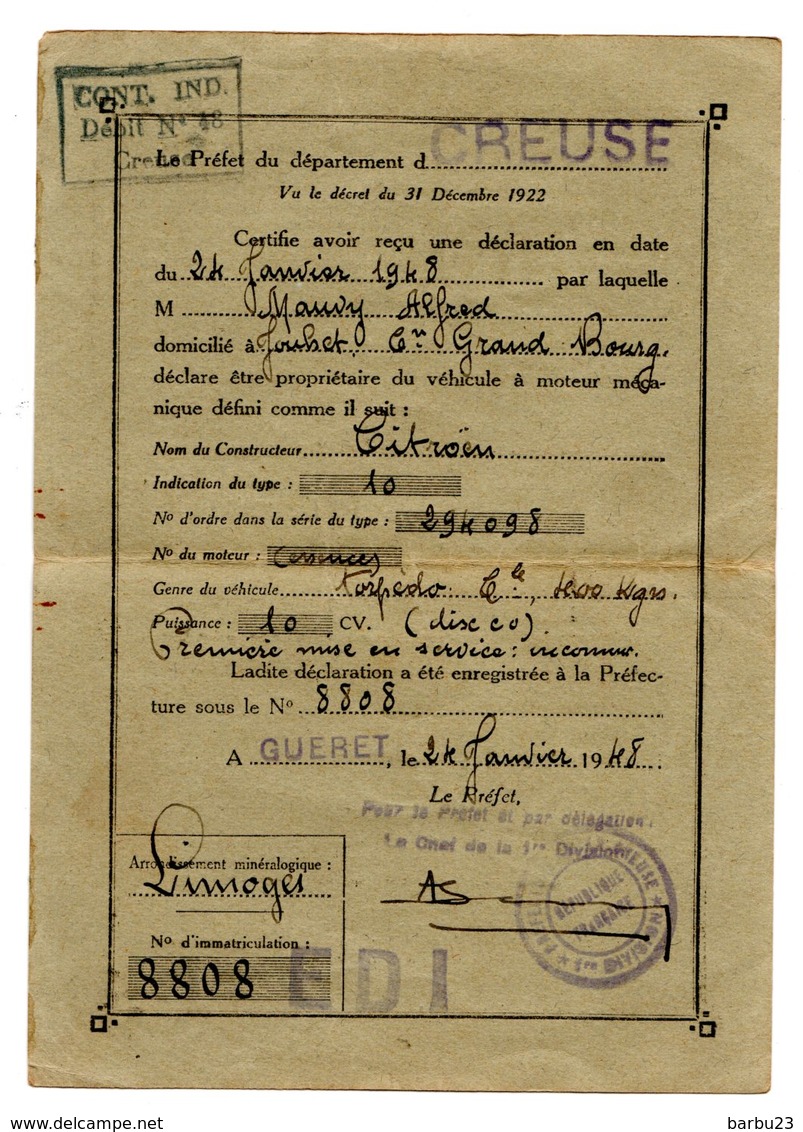 CONT. IND.
Débit No 48
Creuse
Le Préfet du département d CREUSE
Vu le décret du 31 Décembre 1922
Certifie avoir reçu une déclaration en date
du 24 Janvier 1948 par laquelle
M Mauvy Alfred
domicilié à Jouhet. Cne Grand Bourg.
déclare être propriétaire du véhicule à moteur méca-
nique défini comme il suit :
Nom du Constructeur Citroën
Indication du type : 10
No d'ordre dans la série du type : 294098
No du moteur : (essence)
Genre du véhicule Torpédo Cle, 400 Kgs.
Puissance : 10 CV. (disc co).
Première mise en service : inconnue.
Ladite déclaration a été enregistrée à la Préfec-
ture sous le No 8808
A GUERET, le 24 Janvier 1948.
Le Préfet,
Pour le Préfet et par délégation,
Le Chef de la 1re Division
REPUBLIQUE
FRANCAISE
Arrondissement minéralogique :
Limoges
No d'immatriculation :
8808
EDI
delcampe.net
barbu23